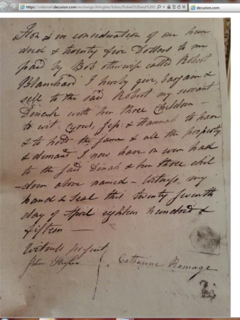 For & in consideration of one hun
dred & twenty five Dollars to me
paid by Bob otherwise called Robert
Blanchard I hereby give, bargain &
sell to the said Robert my servant
Dinah with her three Children
to wit, Cyrus, Jess & Hannah to have
& to hold the same & all the property
& demand I now have or ever had
to the said Dinah & her three chil
dren above named – Witness my
hand & Seal this twenty seventh
day of April eighteen hundred &
fifteen —
Witness present
John
Catharine Ramage